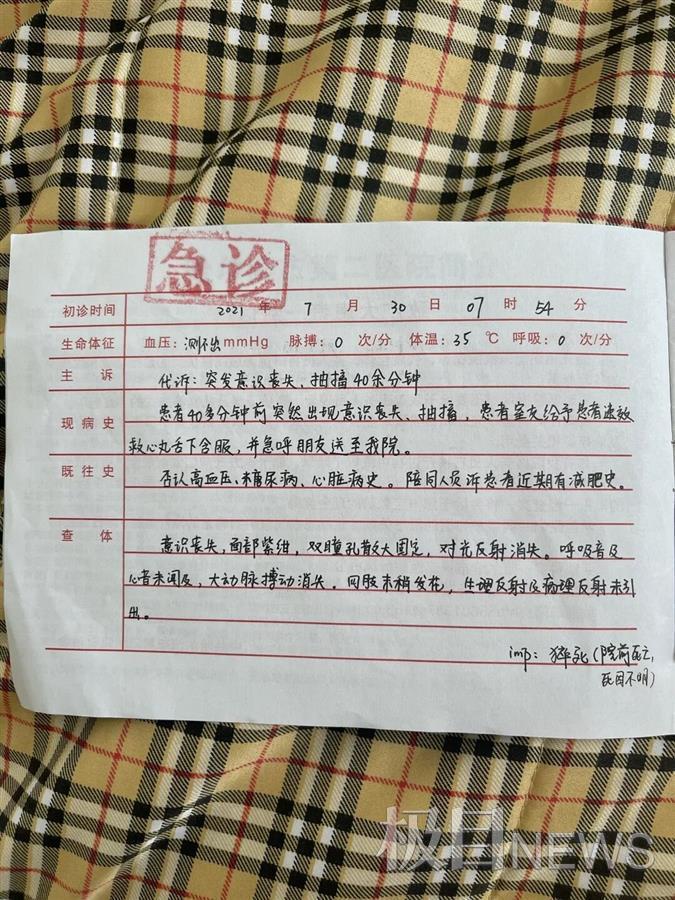 急诊
初诊时间 2021 年 7 月 30 日 07 时 54 分
生命体征 血压: 测不出 mmHg 脉搏: 0 次/分 体温: 35 ℃ 呼吸: 0 次/分
主诉 代诉: 突发意识丧失、抽搐40余分钟
现病史 患者40多分钟前突然出现意识丧失、抽搐, 患者室友给予患者速效
救心丸舌下含服, 并急呼朋友送至我院。
既往史 否认高血压、糖尿病、心脏病史。陪同人员诉患者近期有减肥史。
查体 意识丧失, 面部紫绀, 双瞳孔散大固定, 对光反射消失。呼吸音及
心音未闻及, 大动脉搏动消失。四肢末梢发花, 生理反射及病理反射未引
出。
imp: 猝死(院前死亡,
死因不明)
极目NEWS